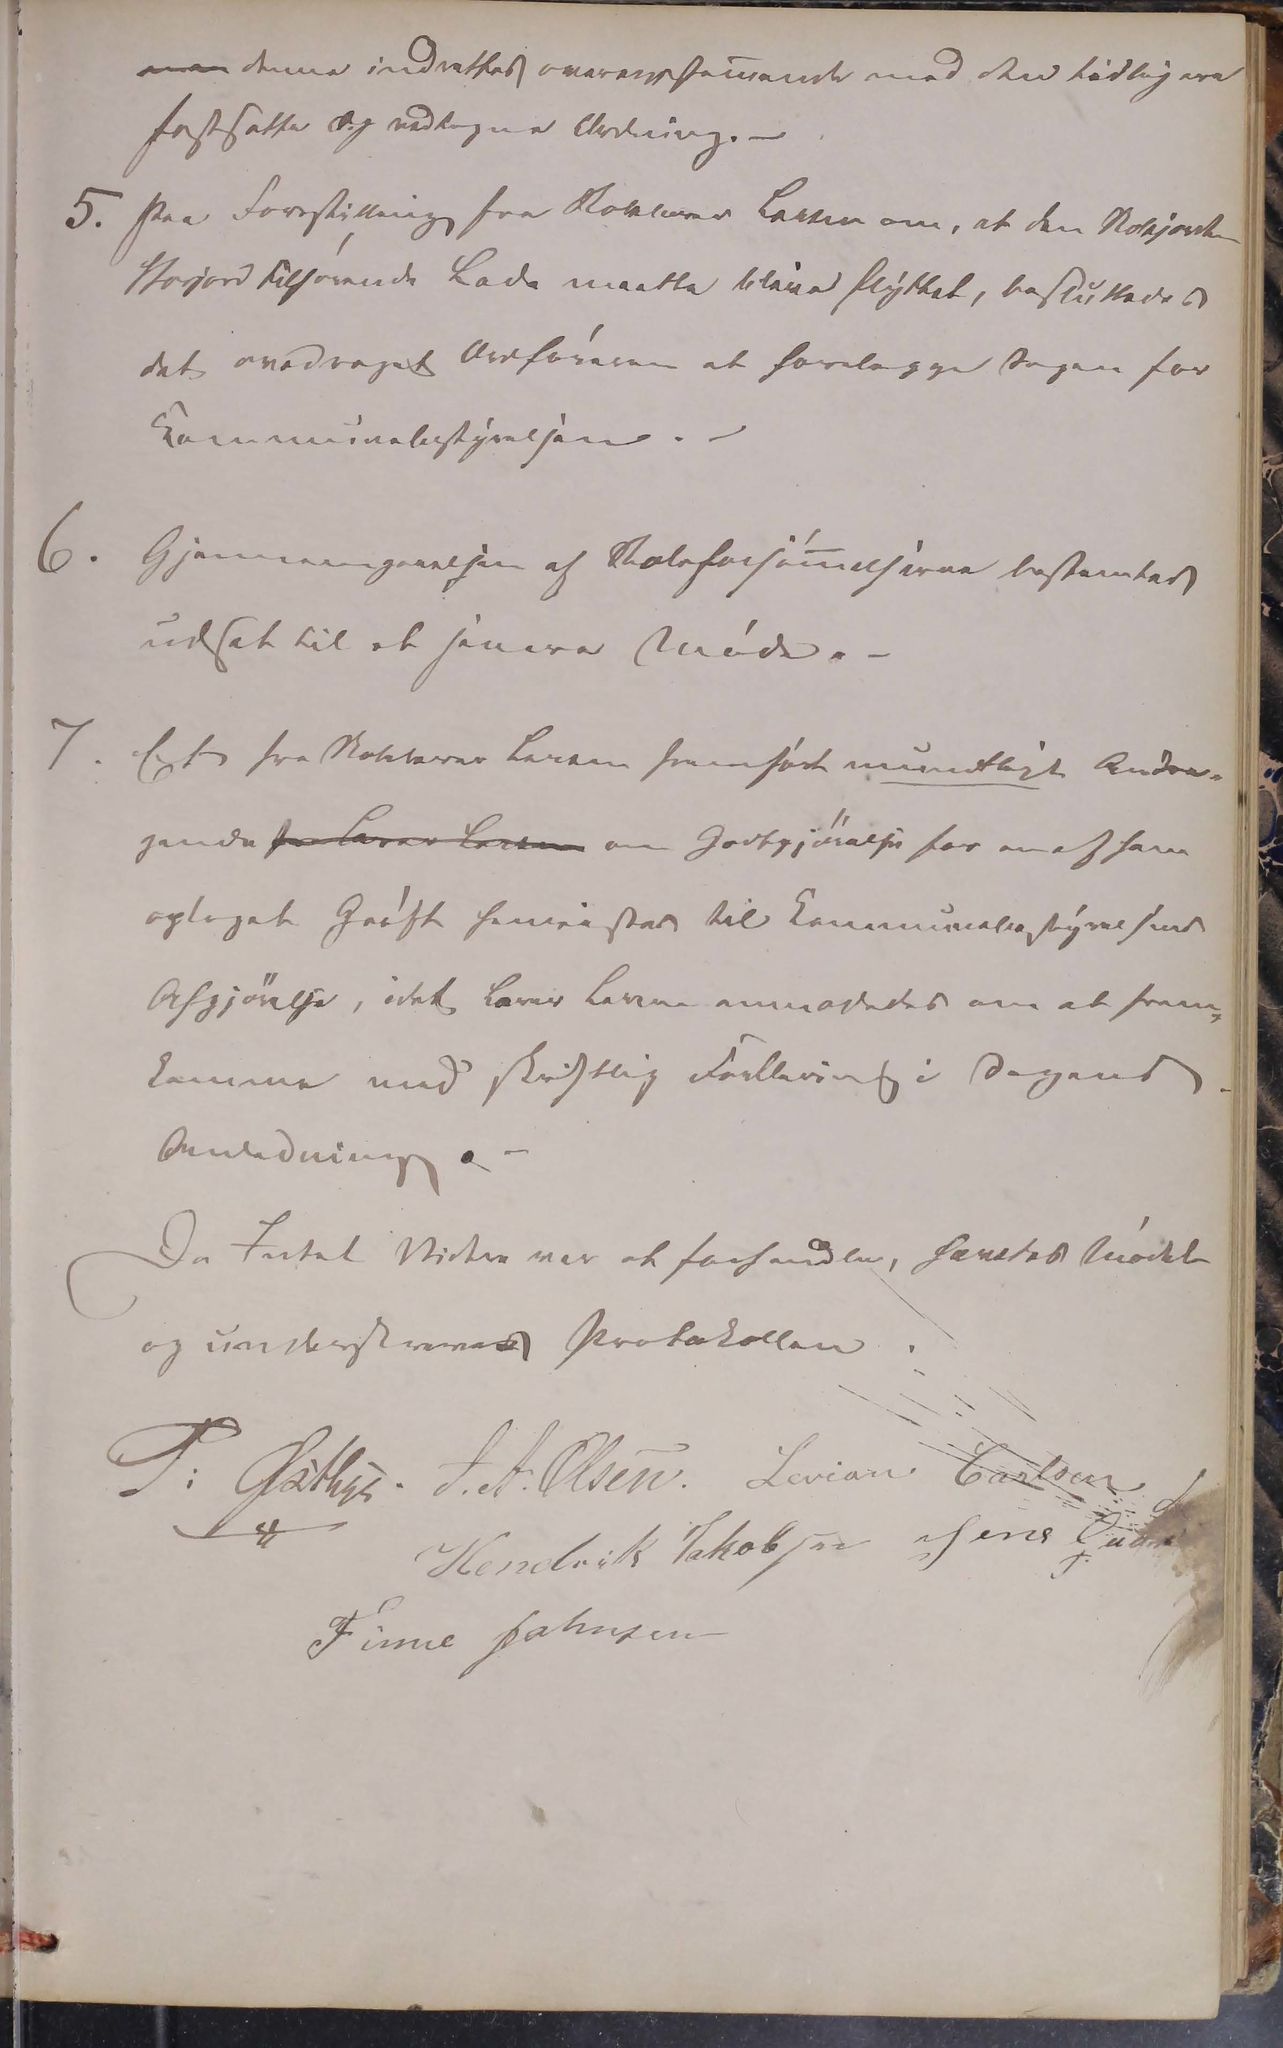 denne indrettes overensstemmende med den tidligere
fastsatte og vedtagne Ordning. –
5. Paa Forestilling fra Skolelærer Larsen om, at den Skolejorden
Storjord tilhørende Lade maatte blive flyttet, besluttedes
det overdraget Ordføreren at forelægge Sagen for
Kommunebestyrelsen. –
6. Gjennemgaaelsen af Skoleforsømmelserne bestemtes
udsat til et senere Møde. –
7. Et fra Skolelærer Larsen fremført mundtligt Andra-
gende fra Lærer Larsen om Godtgjörelse for en af ham
optaget Grøft henvistes til Kommunebestyrelsens
Afgjörelse, idet Lærer Larsen anmodedes om at frem-
komme med skriftlig Forklaring i Sagens
Anledning. –
Da Intet Videre var at forhandle, hævedes Mødet
og underskreves Protokollen.
P: Østbye. J. A. Olsen. Levion Carlsen
Hendrik Jakobsen Jens
Finne Johnsen